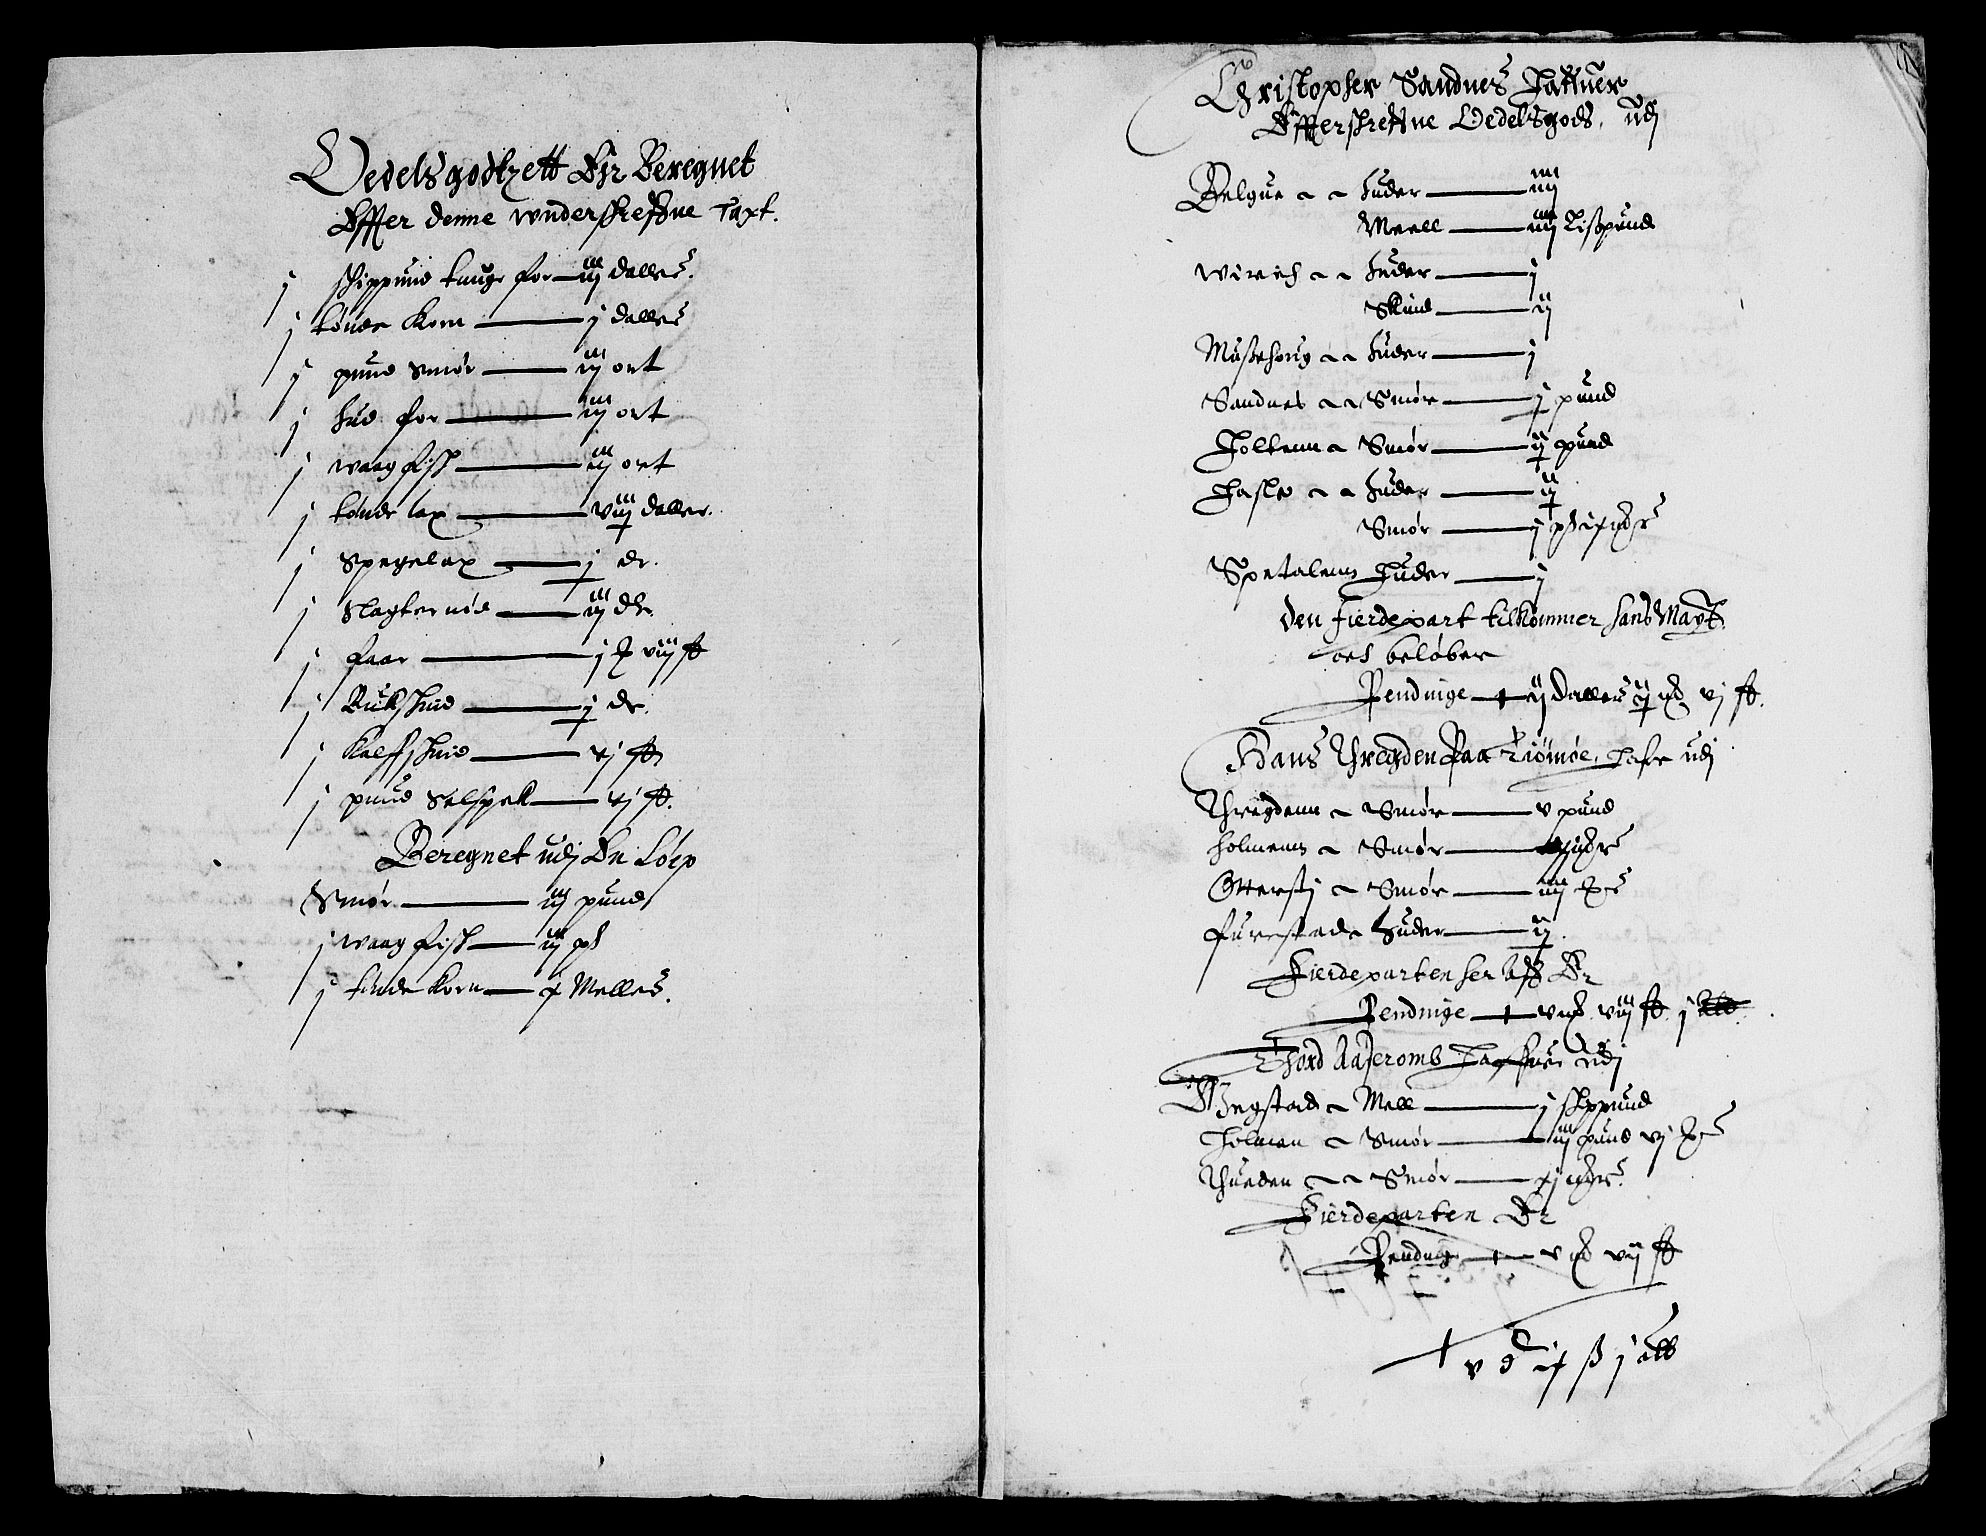 Oedelsgodtzett Er Beregnet
Effter denne wnderschreffne Taxt.
j schippund tunge for — iiij daller.
j tønde Korn — j daller
j pund Smør — iij ort
j hud for — iij ort
j waag fisch — iij ort
j tønde lax — viij daller.
j Spegelax — j dr.
j Slagter nød — iij dr.
j faar — j viij ß
j Buckschind — j dr.
j Kalffschind — vj ß
j pund Selspek — vj ß.
Beregnet udj En Løep
Smør — iij pund
j waag fisch — iij pd
j tønde Korn — x Meller.
Christopher Sandnes Haffuer
Effterschreffne Oedelsgods, udj
Belgue Huder — iiij
Meell — iiij Lispund
Wirich Huder — j
Skind — ij
Mussehoug Huder — j
Sandnes Smør — j pund
Holtenn Smør — ij pund
Hasle Huder — ij
Smør — j pd
Spetalenn Huder — j
den Fierdepart tilkommer hans Maytt.
och beløber
Pendinge — ij Daller vj ß.
Hans Hregden Paa Tiømøe, Hafr udj
Hregdenn Smør — v pund
Holmenn Smør
Otterstj Smør — iiij
Furestade Huder — ij.
Fierdeparten her aff Er
Pendinge — v viij ß j
Thord Aaseromb Haffuer udj
Ringstad Mell — j schippund
Holmen Smør — iij pund vj
Hueden Smør — xj
Fierdeparten Er
Pending — v vij ß
v d ix ß j alb